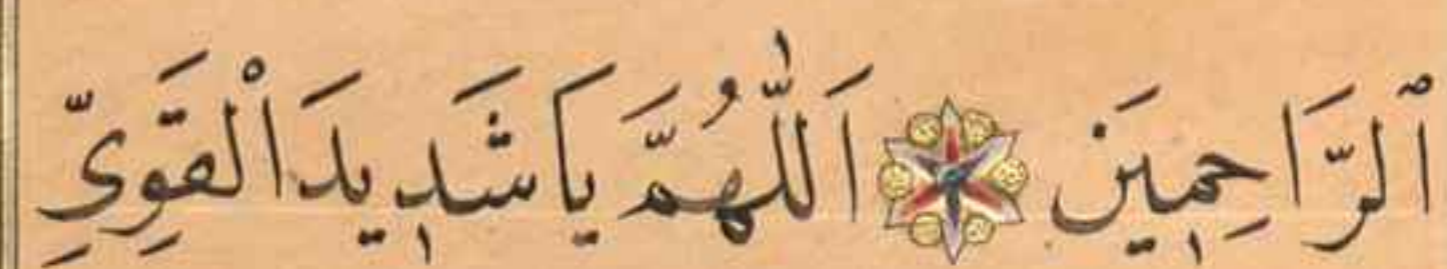 ٱلرَّاحِمِينَ اَللّٰهُمَّ يَا شَدِيدَ الْقَوِيِّ